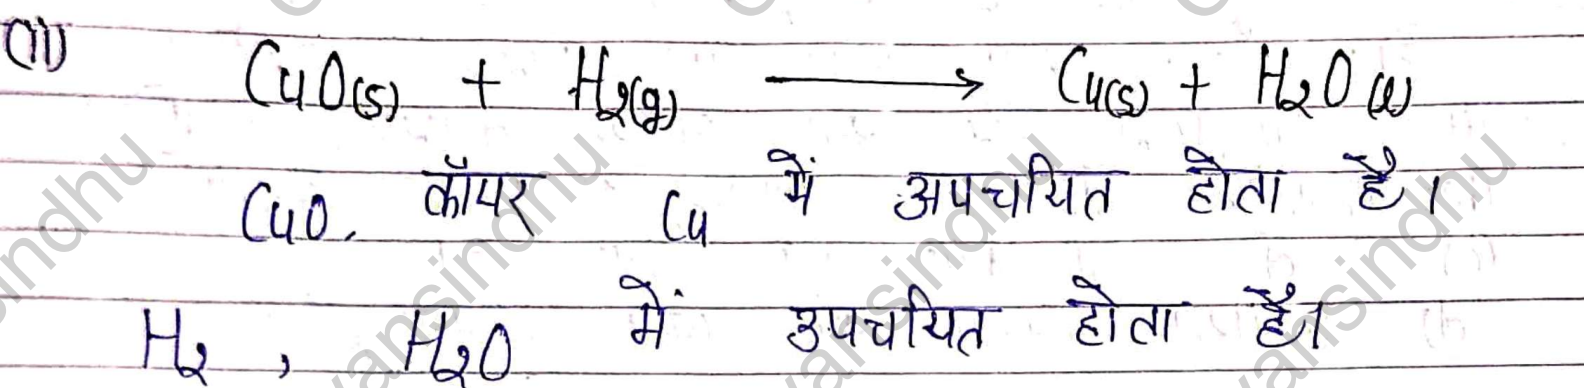 (ii) CuO(s) + H₂(g) ⟶ Cu(s) + H₂O(l)
CuO, कॉपर Cu में अपचयित होता है।
H₂, H₂O में उपचयित होता है।